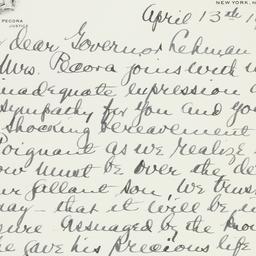 PECORA
JUSTICE
NEW YORK, N
April 13th 1
dear Governor Lehman
Mrs. Pecora joins with
inadequate expression
sympathy for you and yo
shocking bereavement
Poignant as we realize
must be over the de
gallant son, we trus
that it will be in
assuaged by the
he gave his precious life